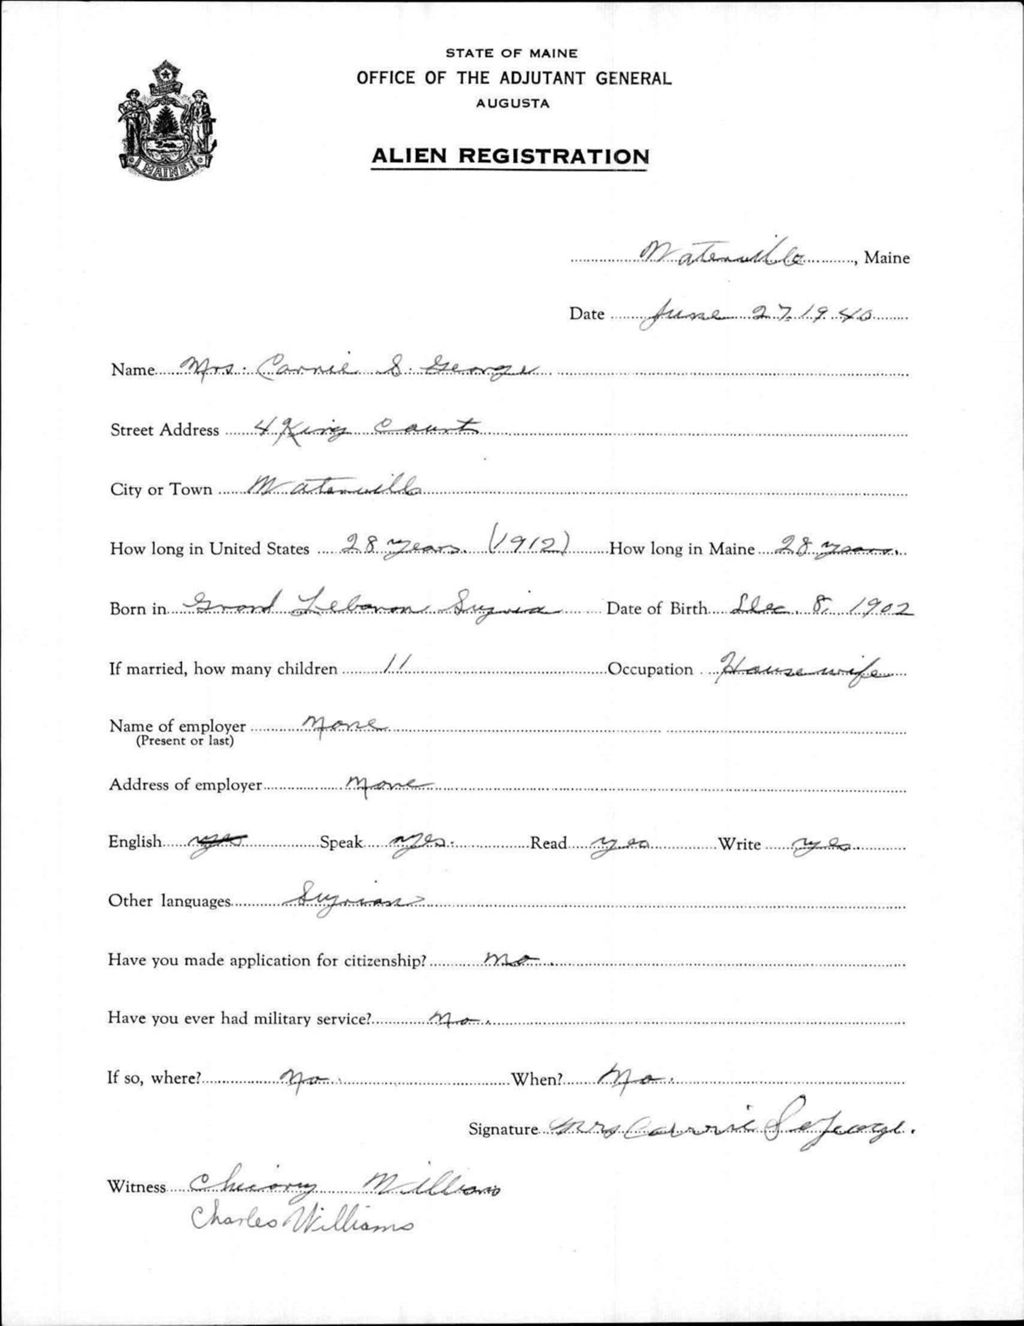 STATE OF MAINE
OFFICE OF THE ADJUTANT GENERAL
AUGUSTA
MAINE
ALIEN REGISTRATION
Waterville, Maine
Date June 27 1940
Name Mrs. Carrie S. George
Street Address 4 King Court
City or Town Waterville
How long in United States 28 years. (1912) How long in Maine 28 years.
Born in Lebanon Date of Birth Dec. 8, 1902
If married, how many children 11 Occupation Housewife
Name of employer None
(Present or last)
Address of employer None
English yes Speak yes. Read yes Write yes.
Other languages Syrian
Have you made application for citizenship? No.
Have you ever had military service? No.
If so, where? No. When? No.
Signature Mrs Carrie S George.
Witness Williams
Charles Williams